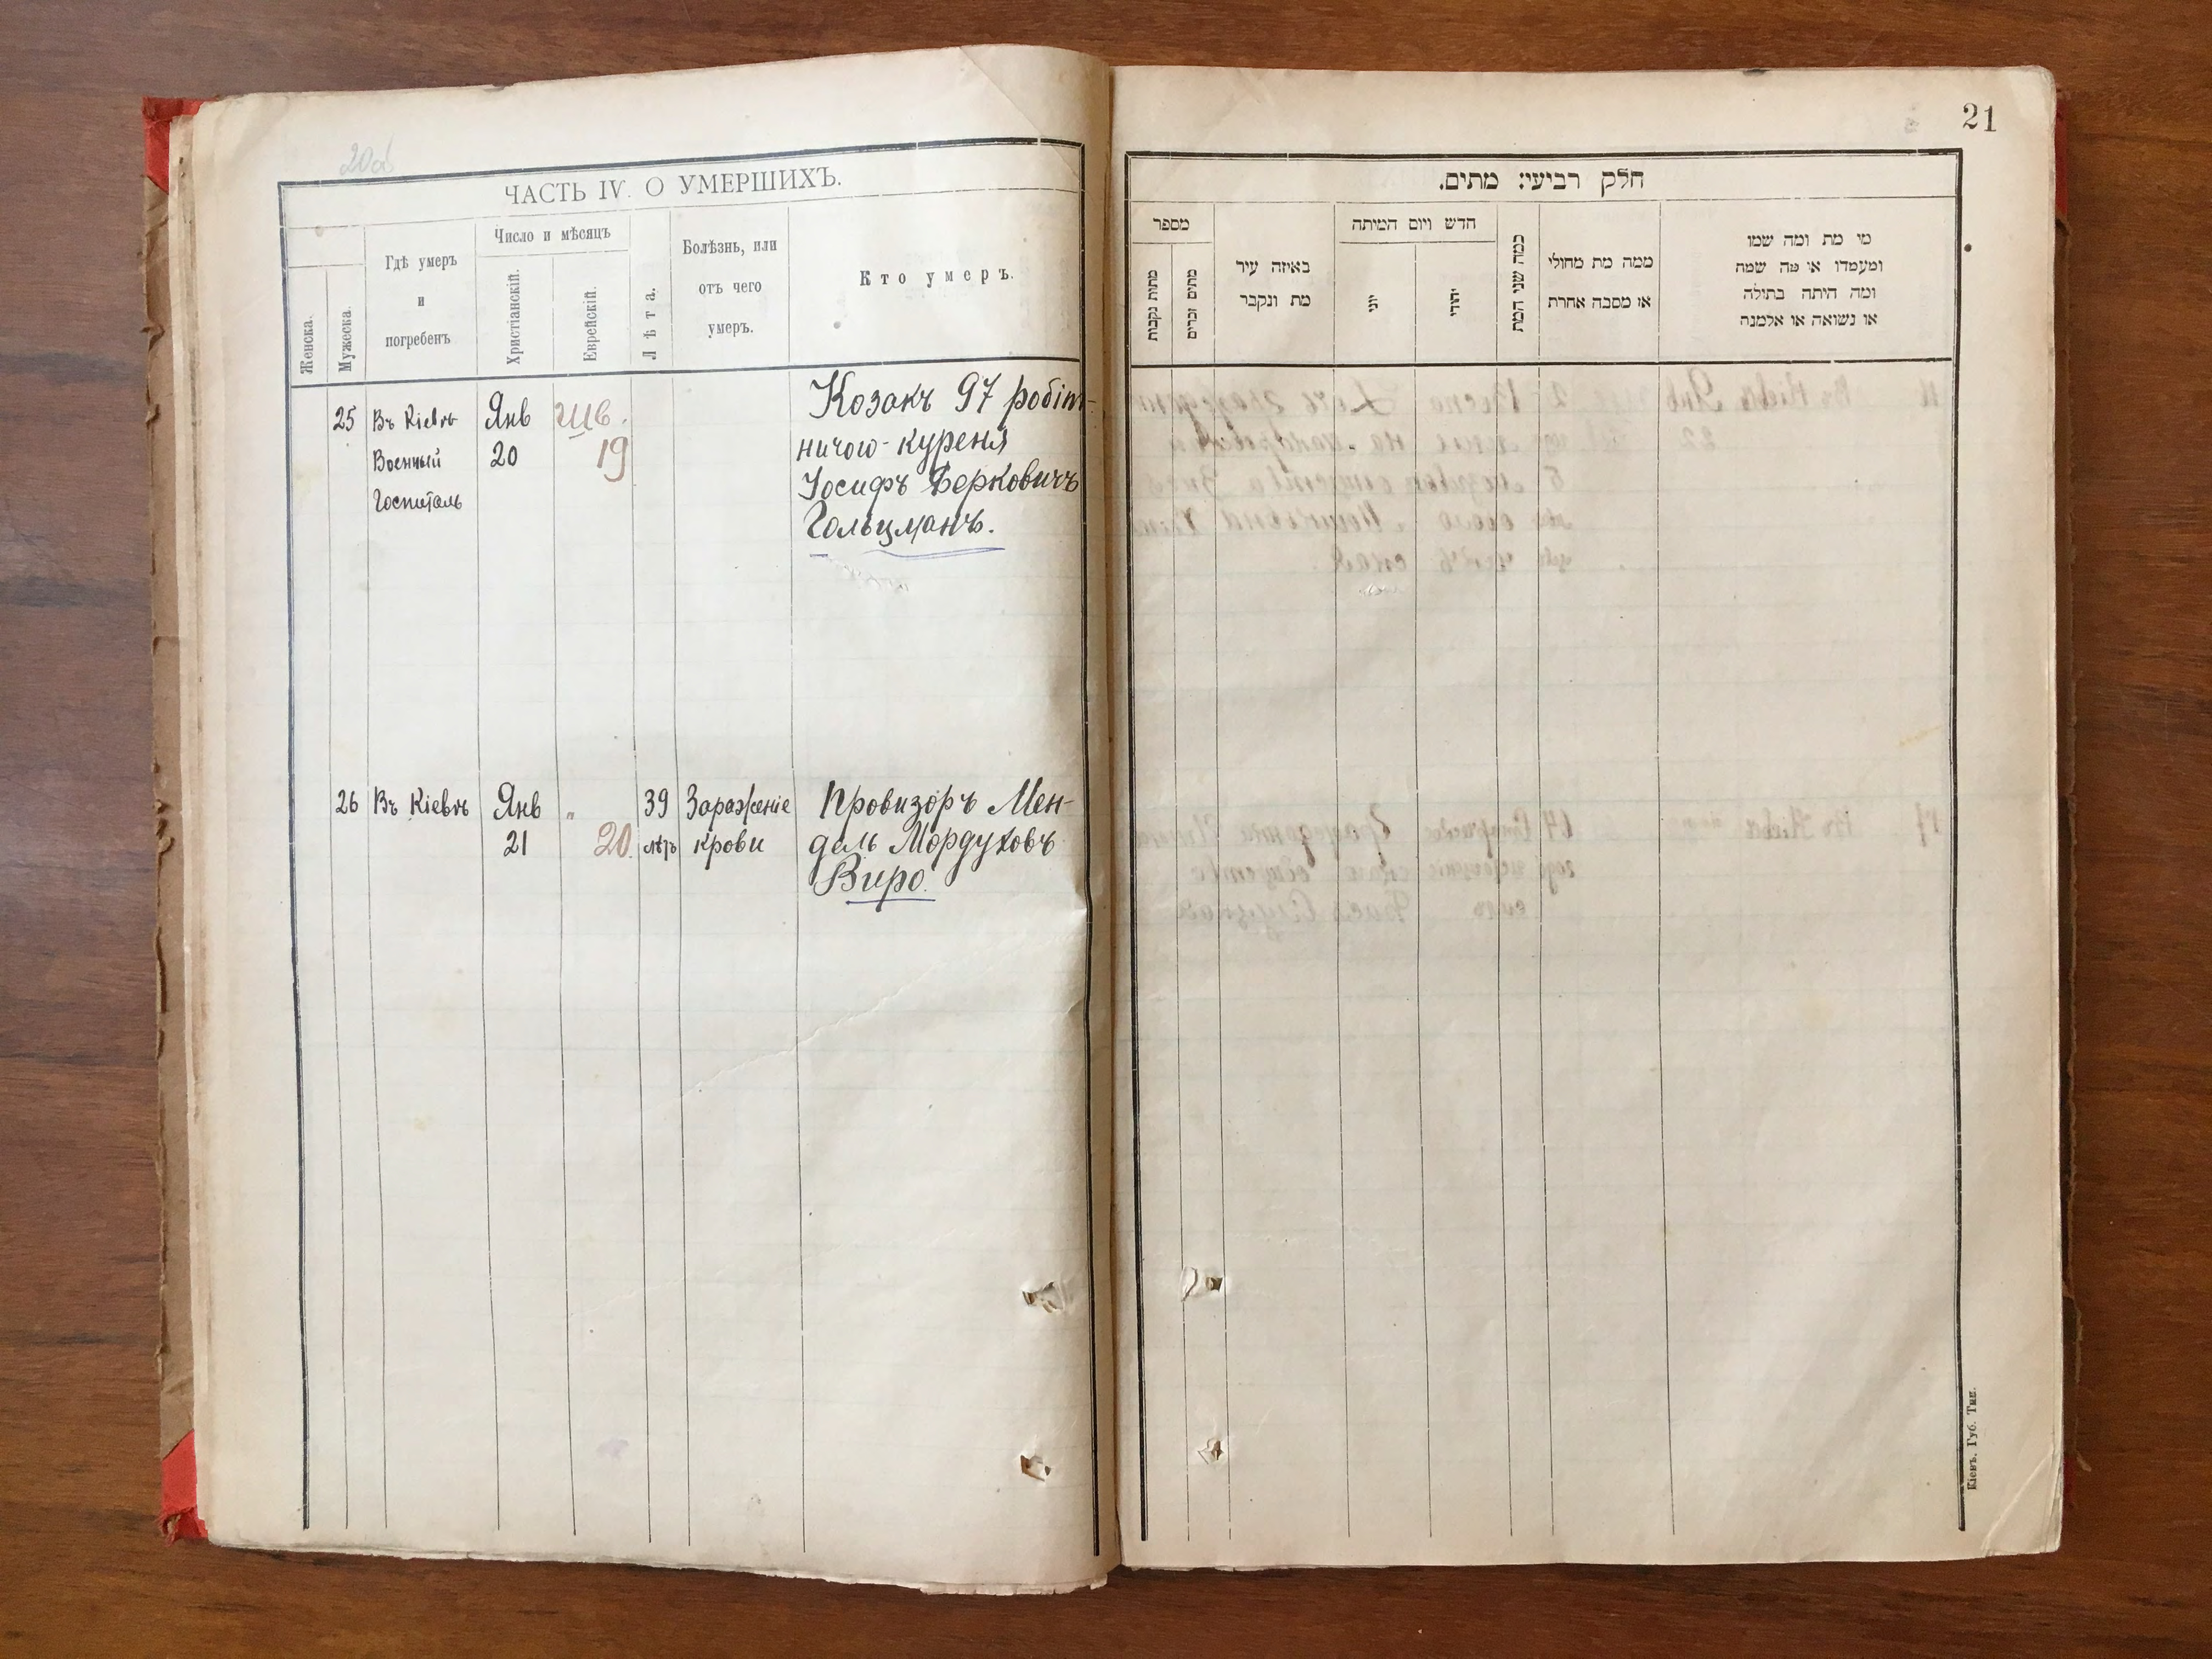 20об
ЧАСТЬ IV. О УМЕРШИХЪ.
Женска.
Мужеска.
Гдѣ умеръ
и
погребенъ
Число и мѣсяцъ
Христіанскій.
Еврейскій.
Лѣта.
Болѣзнь, или
отъ чего
умеръ.
Кто умеръ.
25
Въ Кіевѣ
Военный
Госпиталь
Янв
20
Шв.
19
Козакъ 97 робіт-
ничого куреня
Іосифъ Берковичъ
Гольцманъ.
26
Въ Кіевѣ
Янв
21
"
20
39
лѣтъ
Зараженіе
крови
Провизоръ Мен-
дель Мордуховъ
Виро.
21
חלק רביעי: מתים.
מספר
מתות נקבות
מתים זכרים
באיזה עיר
מת ונקבר
חדש ויום המיתה
יוני
יהודי
כמה שני המת
ממה מת מחולי
או מסבה אחרת
מי מת ומה שמו
ומעמדו או מה שמה
ומה היתה בתולה
או נשואה או אלמנה
Кіевъ. Губ. Тип.